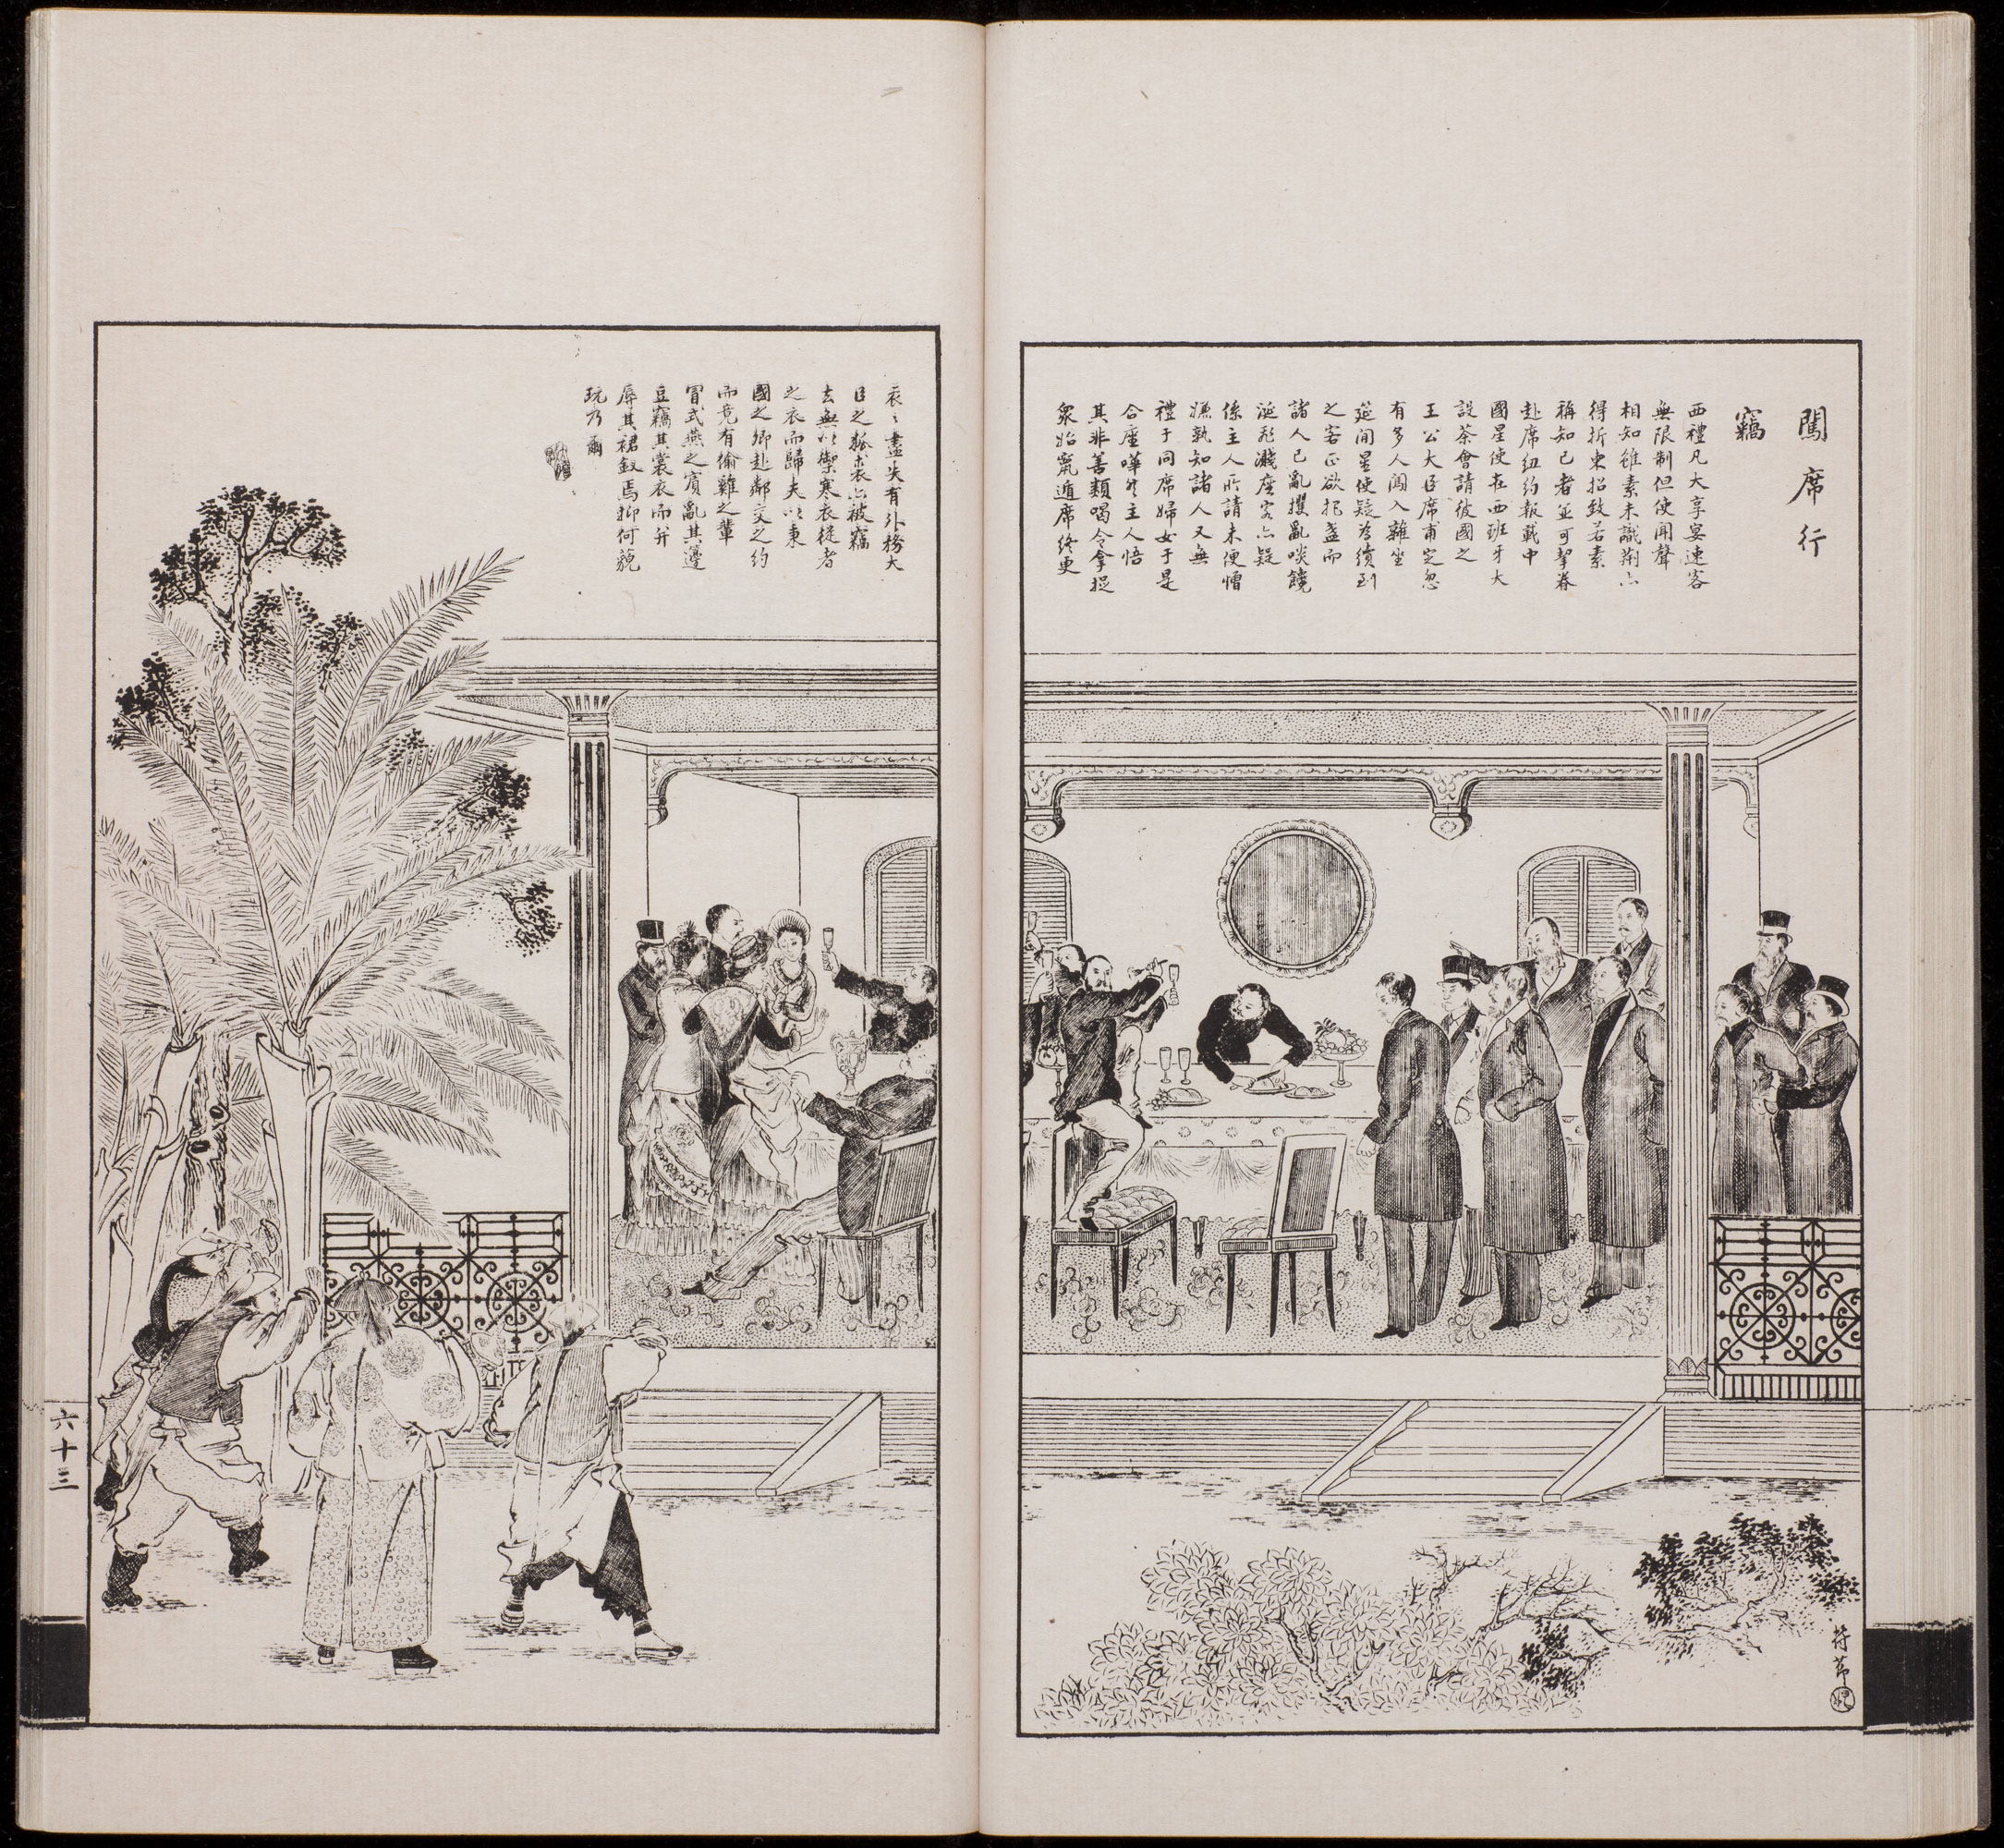 闖席行
竊
西禮凡大享宴速客
無限制但使聞聲
相知雖素未識荊亦
得折柬招致若素
稱知已者並可挈眷
赴席紐約報載中
國星使在西班牙大
設茶會請彼國之
王公大臣席甫定忽
有多人闖入雜坐
筵間星使疑為續到
之客正欲把盞而
諸人已亂攫亂啖饞
涎飛濺座客亦疑
係主人所請未便憎
嫌孰知諸人又無
禮于同席婦女于是
合座嘩然主人悟
其非善類喝令拿捉
衆始竄遁席終更
衣衣盡失有外務大
臣之貂裘亦被竊
去無以禦寒衣從者
之衣而歸夫以東
國之卿赴鄰交之約
而竟有偷雞之輩
冒式燕之賓亂其籩
豆竊其裳衣而并
辱其裙釵焉抑何藐
玩乃爾
符節
六十三